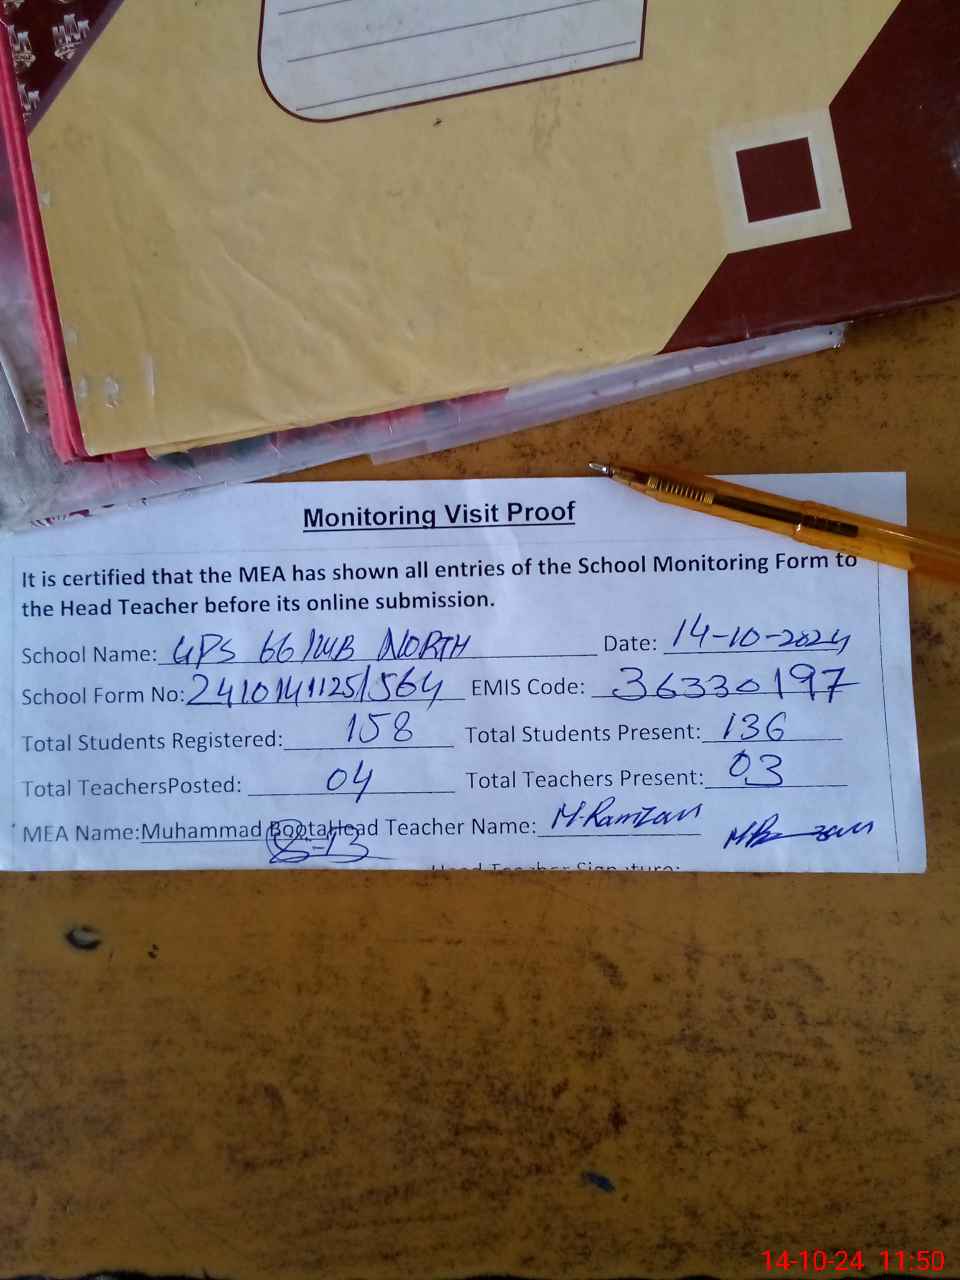 Monitoring Visit Proof
It is certified that the MEA has shown all entries of the School Monitoring Form to
the Head Teacher before its online submission.
School Name: GPS 66/MB NORTH Date: 14-10-2024
School Form No: 24101411251564 EMIS Code: 36330197
Total Students Registered: 158 Total Students Present: 136
Total TeachersPosted: 04 Total Teachers Present: 03
MEA Name:Muhammad Boota Head Teacher Name: M.Ramzan
Head Teacher Signature:
14-10-24 11:50